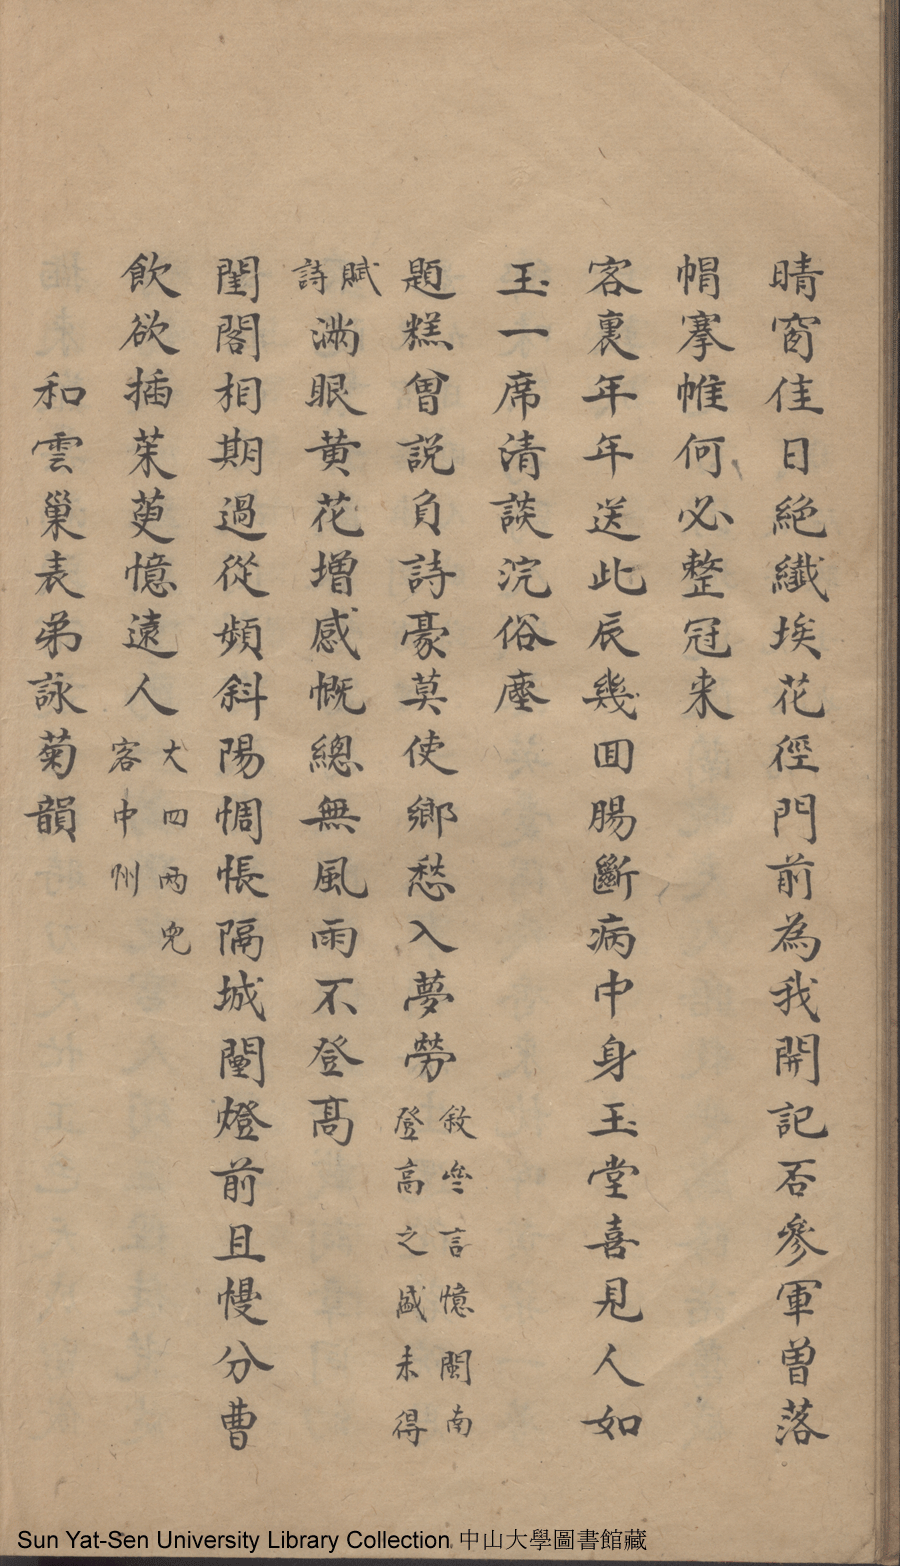 晴窗佳日絕纖埃花徑門前為我開記否參軍曾落
帽搴帷何必整冠来
客裏年年送此辰幾囬腸斷病中身玉堂喜見人如
玉一席清談浣俗塵
題糕曾説負詩豪莫使鄉愁入夢勞
敘叅言憶閩南
登高之盛未得
賦
詩
滿眼黄花增感慨總無風雨不登髙
閨閣相期過從頻斜陽惆悵隔城闉燈前且慢分曹
飲欲插茱萸憶遠人
大四兩兒
客中州
和雲巢表弟詠菊韻
Sun Yat-Sen University Library Collection 中山大學圖書館藏